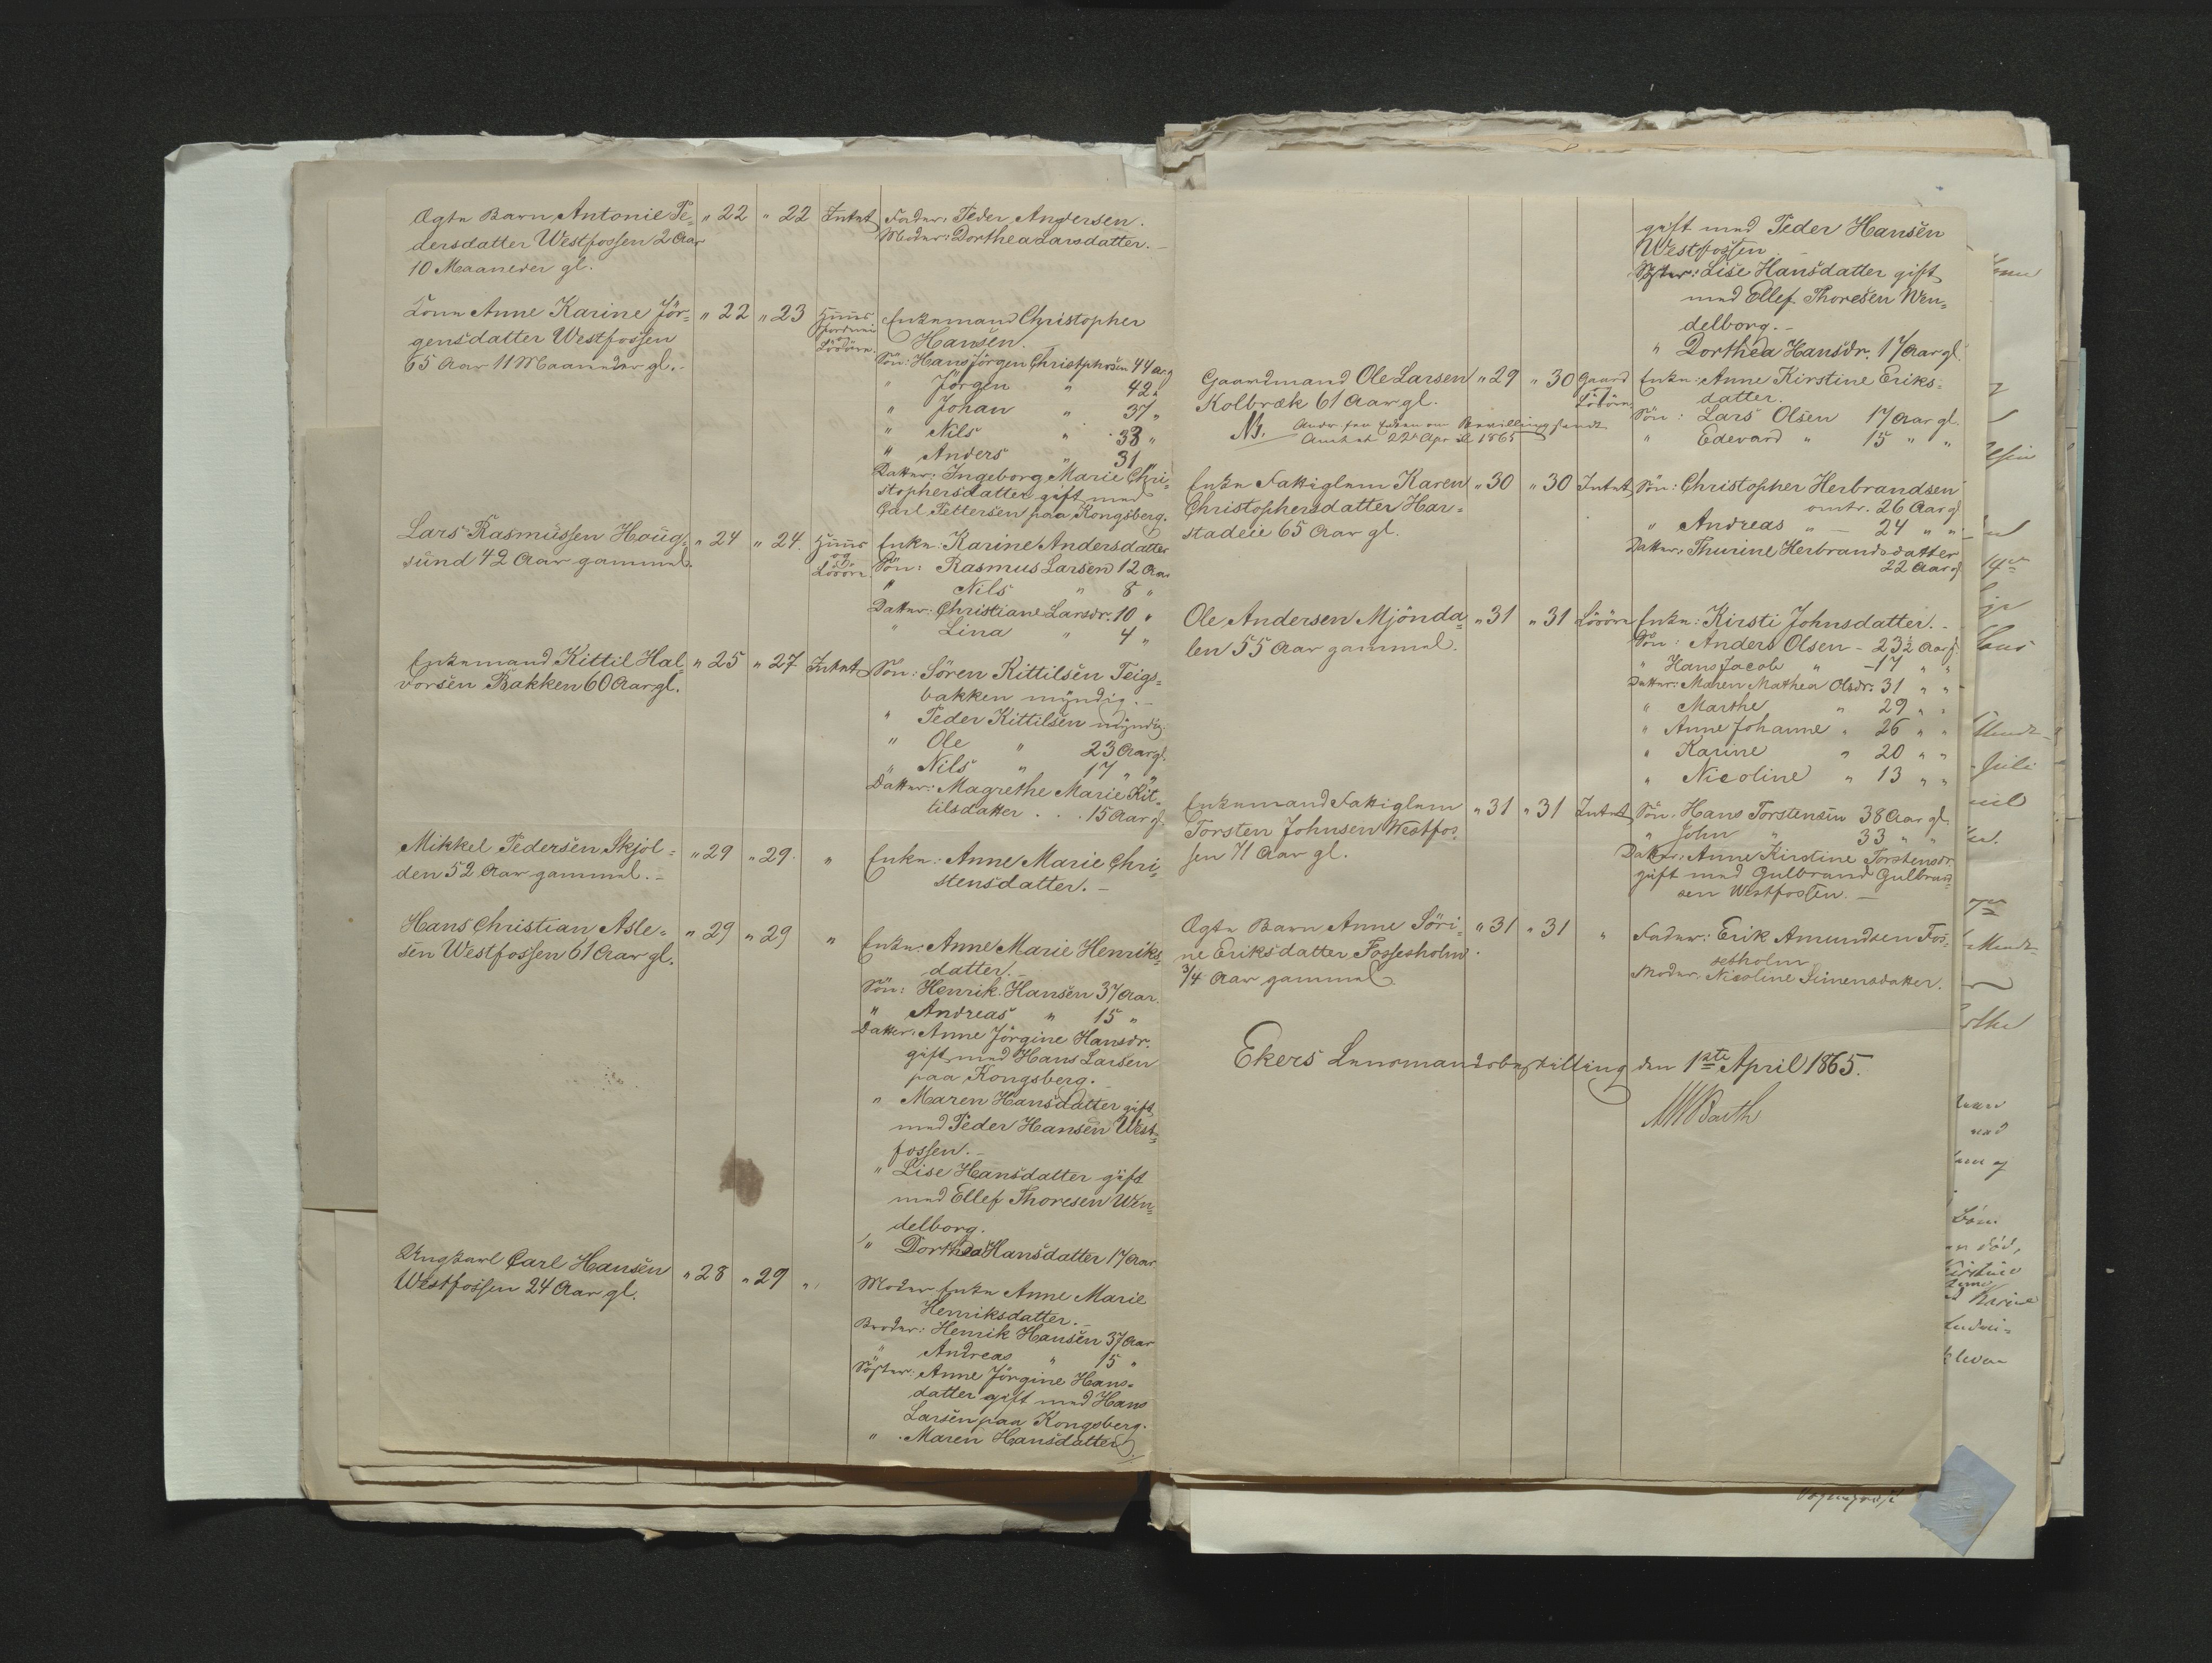 Ægte Barn Antonie Pe= " 22 " 22 Intet Fader: Peder Andersen.
dersdatter Westfossen 2 Aar Moder: Dorthea Larsdatter. –
10 Maaneder gl.
Kone Anne Karine Jör= " 22 " 23 Huus Enkemand Christopher
gensdatter Westfossen Jordvei Hansen. –
65 Aar 11 Maaneder gl. – og Lösöre. Sön: Hans Jörgen Christphsen 44 Aar g
" Jörgen " 42 "
" Johan " 37 "
" Nils " 33 "
" Anders " 31 "
Datter: Ingeborg Marie Chri=
stophersdatter gift med
Carl Pettersen paa Kongsberg.
Lars Rasmussen Houg= " 24 " 24 Huus Enke: Karine Andersdatter
sund 42 Aar gammel. og Lösöre. Sön: Rasmus Larsen 12 Aar
" Nils " 8 "
Datter: Christiane Larsdr. 10 "
" Lina " 4 "
Enkemand Kittil Hal= " 25 " 27 Intet Sön: Sören Kittilsen Teigs=
vorsen Bakken 60 Aar gl. bakken myndig. –
" Peder Kittilsen myndig.
" Ole " 23 Aar gl.
" Nils " 17 " "
Datter: Magrethe Marie Kit=
tilsdatter . . . 15 Aar g
Mikkel Pedersen Skjol= " 29 " 29 " Enke: Anne Marie Chri=
den 52 Aar gammel. – stensdatter. –
Hans Christian Asle= " 29 " 29 " Enke: Anne Marie Henriks=
sen Westfossen 61 Aar gl. datter. –
Sön: Henrik Hansen 37 Aar.
" Andreas " 15 "
Datter: Anne Jörgine Hansdr.
gift med Hans Larsen
paa Kongsberg. –
" Maren Hansdatter gift
med Peder Hansen West=
fossen. –
" Lise Hansdatter gift
med Ellef Thoresen Wen=
delborg.
" Dorthea Hansdatter 17 Aar
Ungkarl Carl Hansen " 28 " 29 " Moder Enke Anne Marie
Westfossen 24 Aar gl. Henriksdatter. –
Broder: Henrik Hansen 37 Aar
" Andreas " 15 "
Söster: Anne Jörgine Hans=
datter gift med Hans
Larsen paa Kongsberg.
" Maren Hansdatter
gift med Peder Hansen
Westfossen –
Söster: Lise Hansdatter gift
med Ellef Thoresen Wen=
delborg. –
" Dorthea Hansdr. 17 Aar gl.
Gaardmand Ole Larsen " 29 " 30 Gaard Enke: Anne Kirstine Eriks=
Kolbræk 61 Aar gl. Lösöre datter.
Sön: Lars Olsen 17 Aar gl.
NB. Bevilling sendt " Edevard " 15 " "
Amtet 22de Apr 1865
Enke Fattiglem Karen " 30 " 30 Intet Sön: Christopher Herbrandsen
Christophersdatter Har= omtr. 26 Aar gl
stadeie 65 Aar gl. " Andreas " – 24 " "
Datter: Thurine Herbrandsdatter
22 Aar g
Ole Andersen Mjönda= " 31 " 31 Lösöre Enke: Kirsti Johnsdatter. –
len 55 Aar gammel. Sön: Anders Olsen – 23½ Aar g.
" Hans Jacob " – 17 " "
Datter: Maren Mathea Olsdr. 31 " "
" Marthe " 29 " "
" Anne Johanne " 26 " "
" Karine " 20 " "
" Nicoline " 13 " "
Enkemand Fattiglem " 31 " 31 Intet Sön: Hans Torstensen 38 Aar gl.
Torsten Johnsen Westfos= " John " 33 " "
sen 71 Aar gl. Datter: Anne Kirstine Torstensdr.
gift med Gulbrand Gulbrand=
sen Westfossen. –
Ægte Barn Anne Söri= " 31 " 31 " Fader: Erik Amundsen Fos=
ne Eriksdatter Fossesholm. sesholm
3/4 Aar gammel. Moder: Nicoline Simensdatter.
Ekers Lensmandsbestilling den 1ste April 1865.
MWBarth